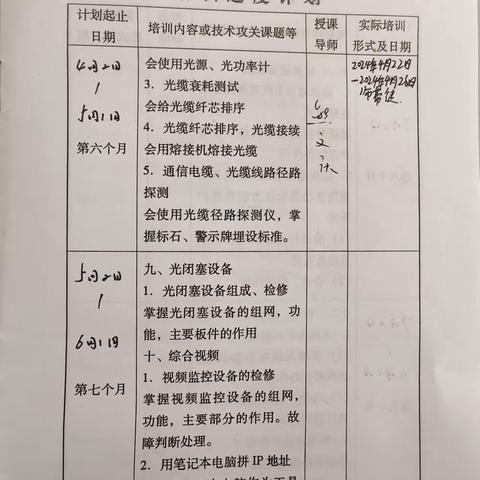 计划起止
日期
培训内容或技术攻关课题等
授课
导师
实际培训
形式及日期
4月2日
/
5月1日
第六个月
会使用光源、光功率计
3．光缆衰耗测试
会给光缆纤芯排序
4．光缆纤芯排序，光缆接续
会用熔接机熔接光缆
5．通信电缆、光缆线路径路
探测
会使用光缆径路探测仪，掌
握标石、警示牌埋设标准。
2024年4月22日
—2024年4月26日
5月2日
/
6月1日
第七个月
九、光闭塞设备
1．光闭塞设备组成、检修
掌握光闭塞设备的组网，功
能，主要板件的作用
十、综合视频
1．视频监控设备的检修
掌握视频监控设备的组网，
功能，主要部分的作用。故
障判断处理。
2．用笔记本电脑拼 IP 地址